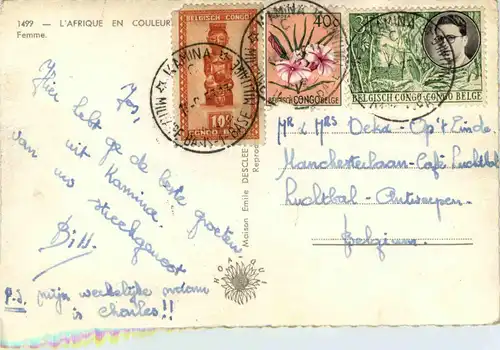 1499 — L'AFRIQUE EN COULEUR
Femme.
BELGISCH CONGO BELGE
10c
CONGO BELGE
40c
BELGISCH CONGO BELGE
2F
BELGISCH CONGO CONGO BELGE
KAMINA
Yes,
Hier hebt ge de beste groeten
uit Kamina.
van uw streekgenoot
Bill.
P.S. Mijn werkelijke voornaam
is Charles!!
Maison Emile DESCLEE
Reprod
Mr & Mrs Ockx-Op't Einde
Manchesterlaan-Café Luchtbal
Luchtbal-Antwerpen.
Belgium.